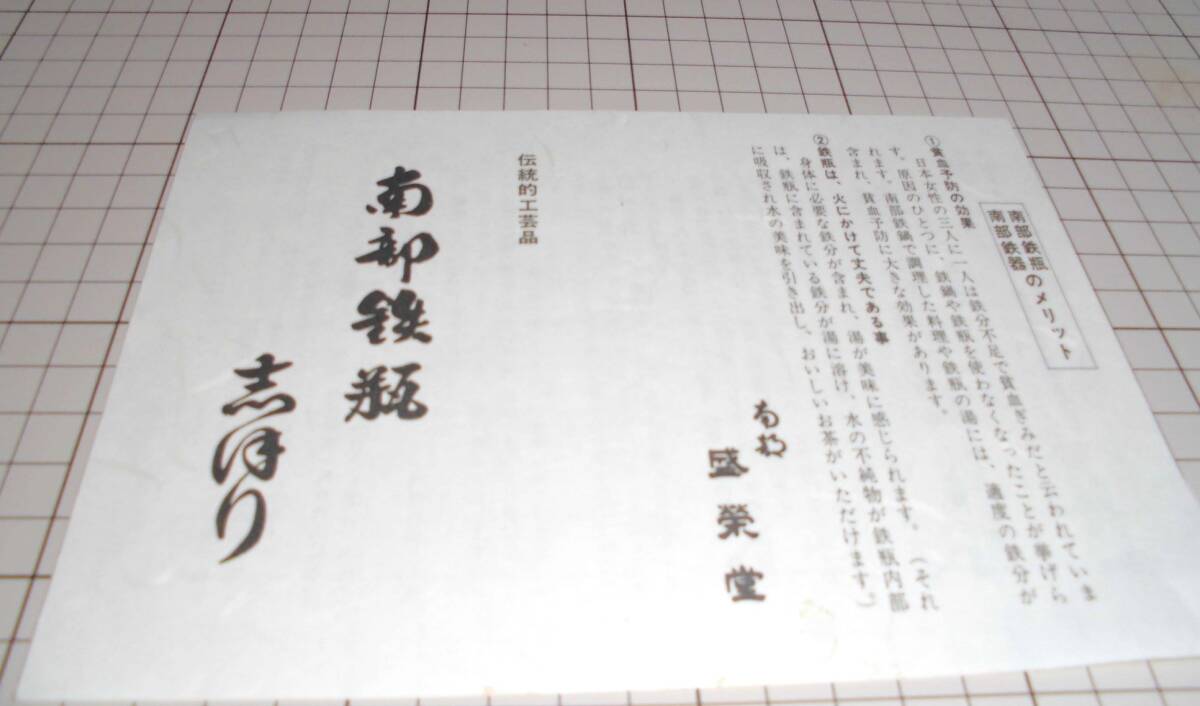 南部鉄瓶のメリット
南部鉄器
①貧血予防の効果
日本女性の三人に一人は鉄分不足で貧血ぎみだと云われていま
す。原因のひとつに、鉄鍋や鉄瓶を使わなくなったことが挙げら
れます。南部鉄鍋で調理した料理や鉄瓶の湯には、適度の鉄分が
含まれ、貧血予防に大きな効果があります。
②鉄瓶は、火にかけて丈夫である事
身体に必要な鉄分が含まれ、湯が美味に感じられます。(それ
は、鉄瓶に含まれている鉄分が湯に溶け、水の不純物が鉄瓶内部
に吸収され水の美味を引き出し、おいしいお茶がいただけます。)
南部
盛榮堂
伝統的工芸品
南部鉄瓶
志ほり